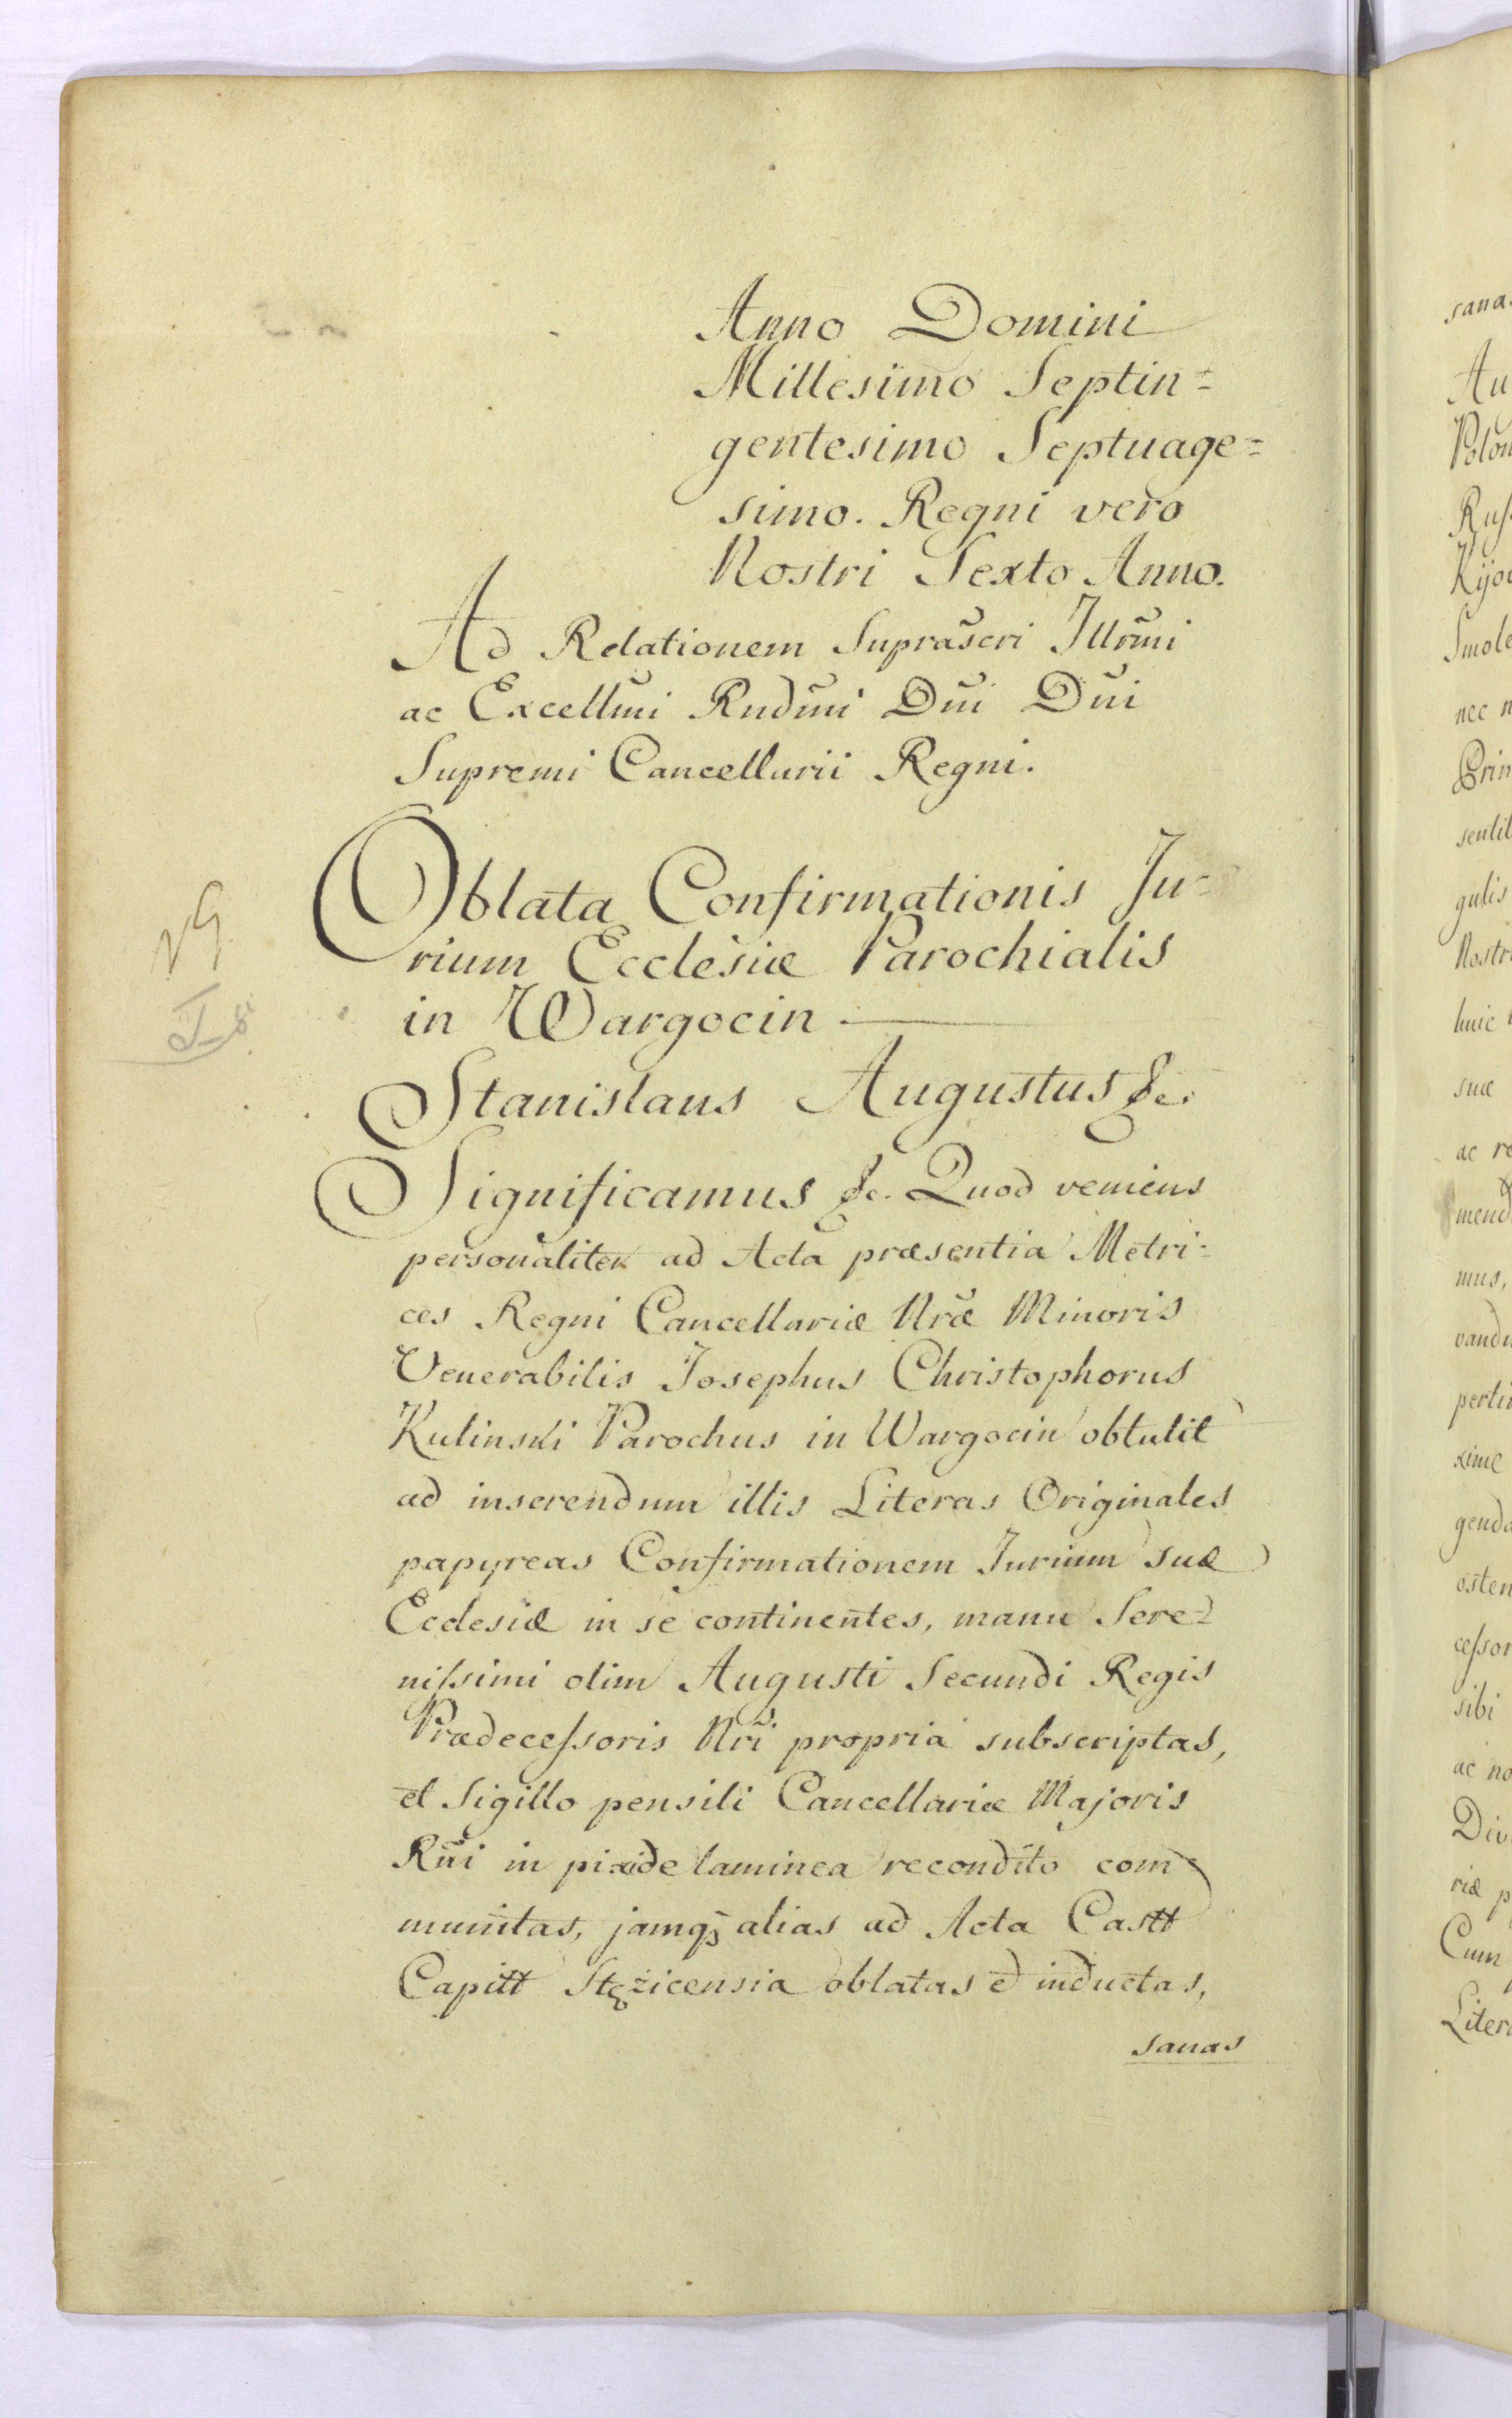 Anno Domini
Millesimo Septin=
gentesimo Septuage=
simo. Regni vero
Nostri Sexto Anno.
Ad Relationem Suprascri Illrmi
ac Excellmi Rndmi Dni Dni
Supremi Cancellarii Regni.
Oblata Confirmationis Ju=
rium Ecclesiæ Parochialis
in Wargocin
Stanislaus Augustus &c.
Significamus &c. Quod veniens
personaliter ad Acta præsentia Metri=
ces Regni Cancellariæ Nræ Minoris
Venerabilis Josephus Christophorus
Kulinski Parochus in Wargocin obtulit
ad inserendum illis Literas Originales
papyreas Confirmationem Jurium suæ
Ecclesiæ in se continentes, manu Sere=
nissimi olim Augusti Secundi Regis
Prædecessoris Nri propria subscriptas,
et Sigillo pensili Cancellariæ Majoris
Rni in pixide laminea recondito com=
munitas, jamqꝫ alias ad Acta Castt
Capitt Stężicensia oblatas et inductas,
sanas